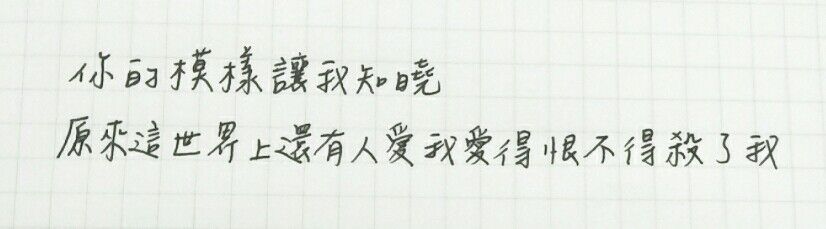 你的模樣讓我知曉
原來這世界上還有人愛我愛得恨不得殺了我